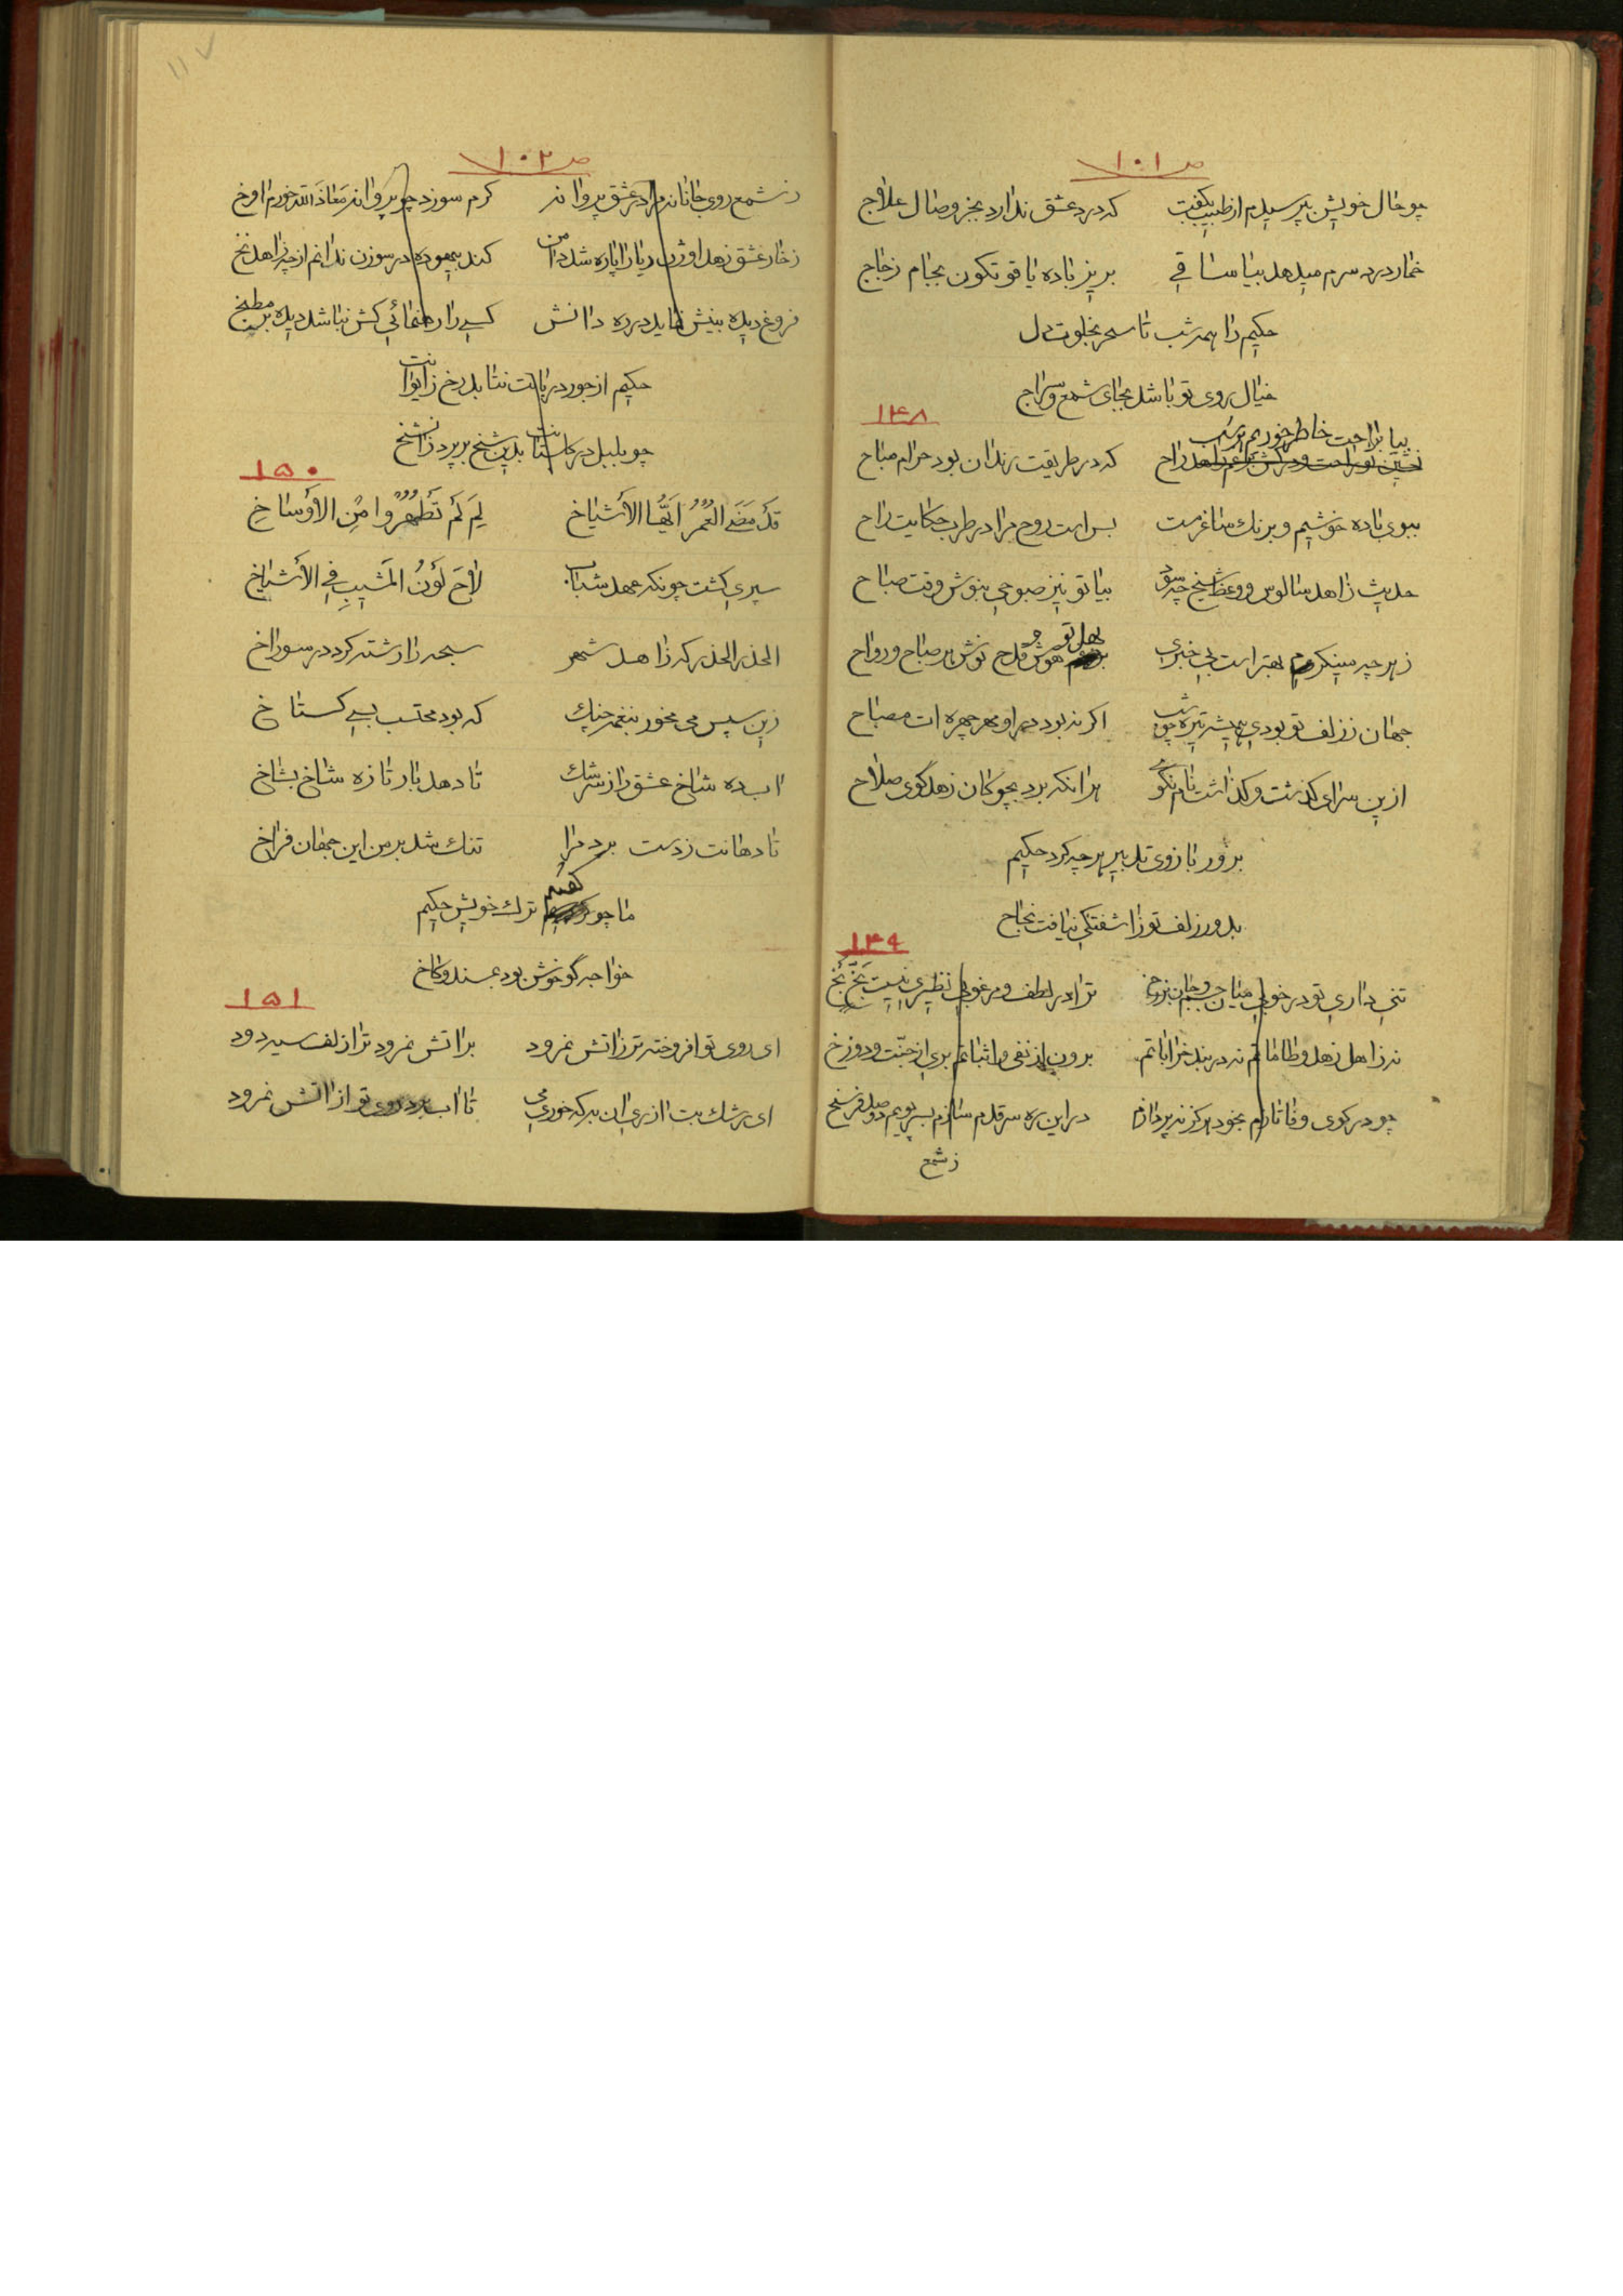 ص ۱۰۱
چو حال خویش بپرسیدم از طبیب بگفت که درد عشق ندارد بجز وصال علاج
خمار درد سرم میدهد بیا ساقی بریز باده یاقوتگون بجام زجاج
حکیم را همه شب تا سحر بخلوت دل
خیال روی تو باشد بجای شمع و سراج
۱۴۸
بیا براحت خاطر خوریم که در طریقت رندان بود حرام مباح
ببوی باده خوشیم و برنک ساغر مست بس است روح مرا در طرب حکایت راح
حدیث زاهد سالوس و وعظ شیخ چه سود بیا تو نیز صبوحی بنوش وقت صباح
ز هر چه مینگرم بهتر است بی خبری بهل تو هوش و قدح نوش هر صباح و رواح
جهان ز زلف تو بودی همیشه تیره چو شب اکر نبود در او مهر چهره ات مصباح
ازین سرای کذشت و کذاشت نام نکو هر انکه برد بچوکان زهد کوی صلاح
بزور بازوی تدبیر هر چه کرد حکیم
بدور زلف تو زاشفتکی نیافت نجاح
۱۴۹
تنی داری تو در خوبی میان جسم و جان برزخ ترا در لطف و مرغوبی نظیری نیست بخ بخ
نه زاهل زهد و طاماتم نه در بند خراباتم برون از نفی و اثباتم بری از جنت و دوزخ
چو در کوی وفا تازم بخود هرکز نپردازم در این ره سر قدم سازم بسر پویم دو صد فرسخ
ز شمع
ص ۱۰۲
ز شمع روی جانانه مرا در عشق پروا نه کرم سوزد چو پروانه معاذ الله خورم اوخ
ز خار عشق زهد اوژن ریا را پاره شد دامن کند بیهوده در سوزن ندانم از چه زاهد نخ
فروغ دیده بینش نماید در ره دانش کسی را رهنمائی کش نباشد دیده بر مطبخ
حکیم از جور دربانت نتابد رخ ز ایوانت
چو بلبل در کلستانت بدین شخ بر پرد زانشخ
۱۵۰
قَد مَضَی العُمرُ ایّها الاشیاخ لِمَ لَم تَطَهَّروا مِن الاَوساخِ
سپری کشت چونکه عهد شباب لاحَ لَونُ المَشیبِ فی الاَشیاخ
الحذر الحذر که زاهد شهر سبحه را رشته کرد در سوراخ
زین سپس می مخور بنغمه چنک که بود محتسب بسی کستاخ
اب ده شاخ عشق را ز سرشک تا دهد بار تازه شاخ بشاخ
تا دهانت ز دست برد مرا تنک شد بر من این جهان فراخ
ما چو کفتیم ترک خویش حکیم
خواجه کو خوش بود بمسند و کاخ
۱۵۱
ای روی تو افروخته تر زاتش نمرود بر اتش نمرود ترا زلف سیه دود
ای رشک بت ازری ان به که خوری می تا اب برد روی تو از اتش نمرود